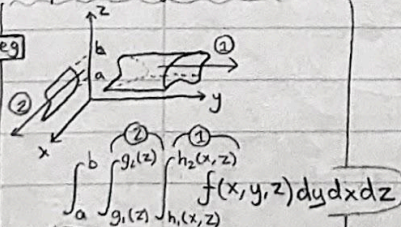 eg
z
b
a
①
②
y
x
② ①
∫_a^b ∫_{g₁(z)}^{g₂(z)} ∫_{h₁(x,z)}^{h₂(x,z)} f(x,y,z)dydxdz